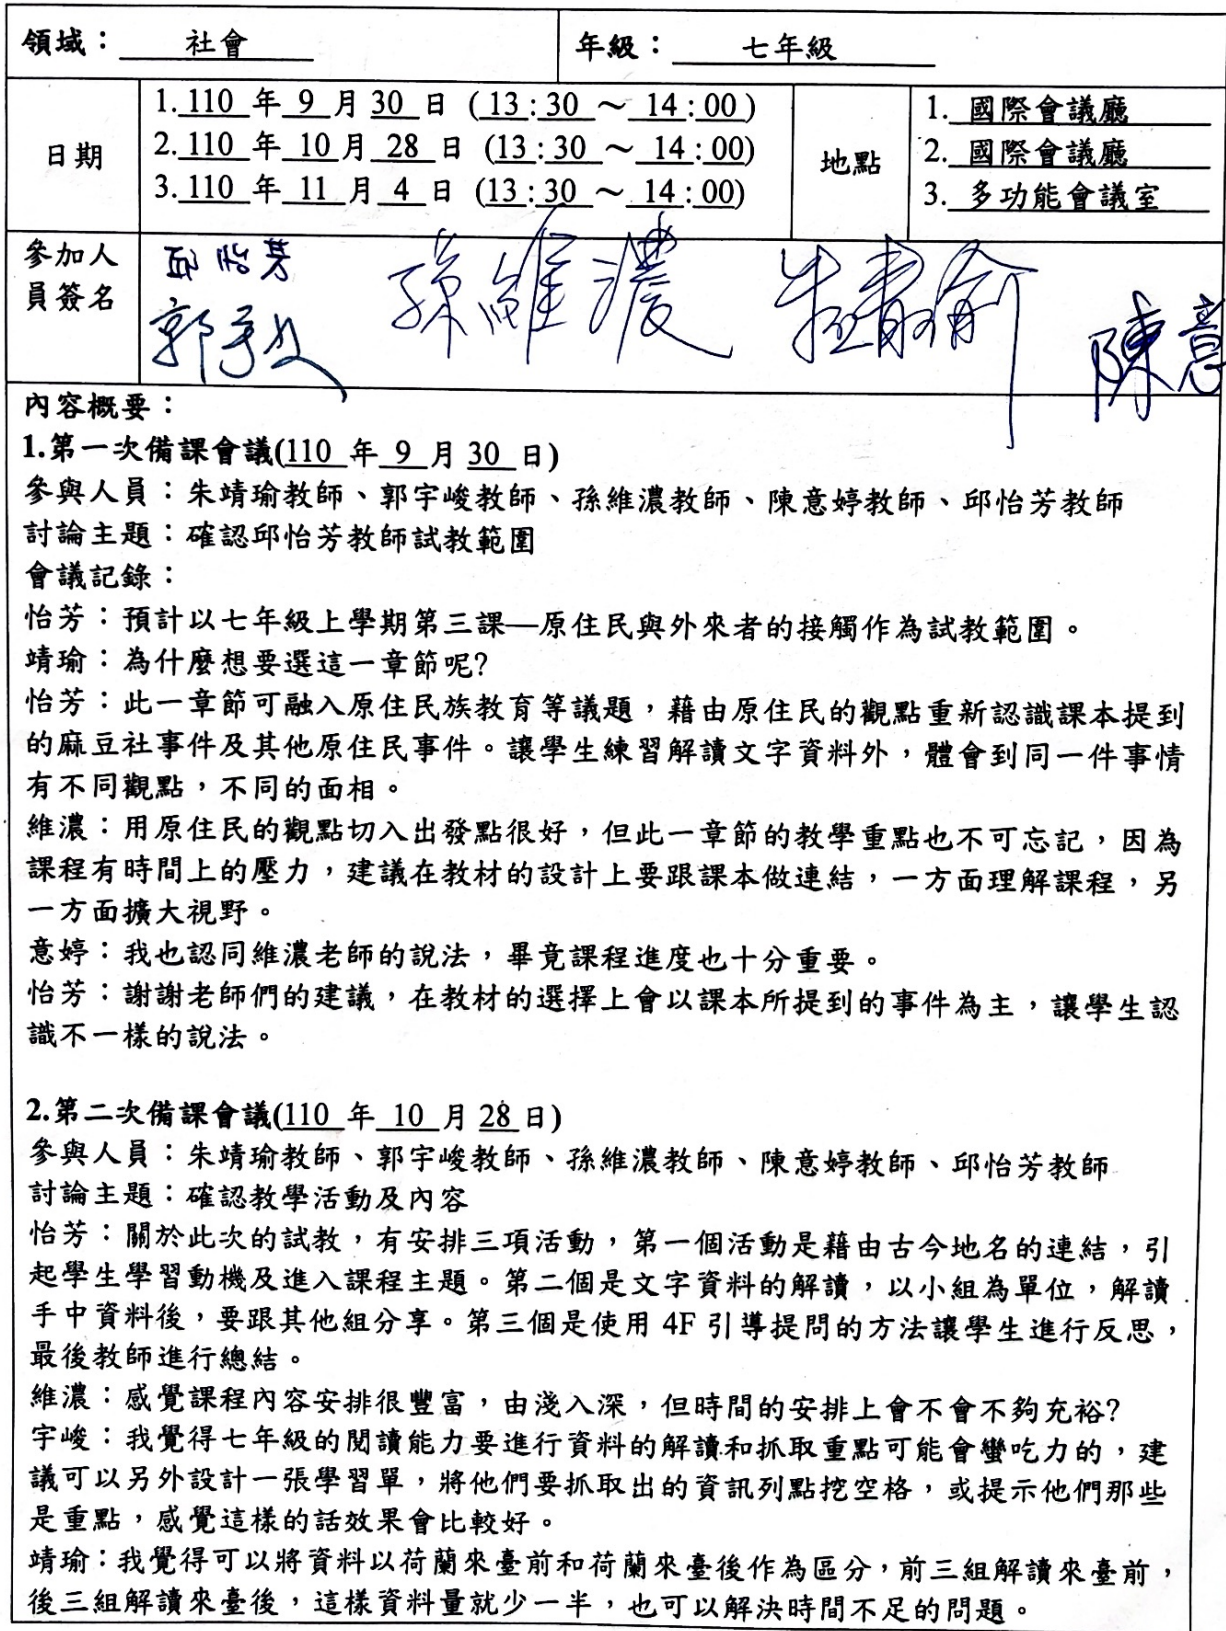 領域： 社會 年級： 七年級
日期
1. 110 年 9 月 30 日 (13:30 ～ 14:00)
2. 110 年 10 月 28 日 (13:30 ～ 14:00)
3. 110 年 11 月 4 日 (13:30 ～ 14:00)
地點
1. 國際會議廳
2. 國際會議廳
3. 多功能會議室
參加人
員簽名
邱怡芳 孫維濃 朱靖瑜 陳意
內容概要：
1.第一次備課會議(110 年 9 月 30 日)
參與人員：朱靖瑜教師、郭宇峻教師、孫維濃教師、陳意婷教師、邱怡芳教師
討論主題：確認邱怡芳教師試教範圍
會議記錄：
怡芳：預計以七年級上學期第三課—原住民與外來者的接觸作為試教範圍。
靖瑜：為什麼想要選這一章節呢?
怡芳：此一章節可融入原住民族教育等議題，藉由原住民的觀點重新認識課本提到
的麻豆社事件及其他原住民事件。讓學生練習解讀文字資料外，體會到同一件事情
有不同觀點，不同的面相。
維濃：用原住民的觀點切入出發點很好，但此一章節的教學重點也不可忘記，因為
課程有時間上的壓力，建議在教材的設計上要跟課本做連結，一方面理解課程，另
一方面擴大視野。
意婷：我也認同維濃老師的說法，畢竟課程進度也十分重要。
怡芳：謝謝老師們的建議，在教材的選擇上會以課本所提到的事件為主，讓學生認
識不一樣的說法。
2.第二次備課會議(110 年 10 月 28 日)
參與人員：朱靖瑜教師、郭宇峻教師、孫維濃教師、陳意婷教師、邱怡芳教師
討論主題：確認教學活動及內容
怡芳：關於此次的試教，有安排三項活動，第一個活動是藉由古今地名的連結，引
起學生學習動機及進入課程主題。第二個是文字資料的解讀，以小組為單位，解讀
手中資料後，要跟其他組分享。第三個是使用 4F 引導提問的方法讓學生進行反思，
最後教師進行總結。
維濃：感覺課程內容安排很豐富，由淺入深，但時間的安排上會不會不夠充裕?
宇峻：我覺得七年級的閱讀能力要進行資料的解讀和抓取重點可能會蠻吃力的，建
議可以另外設計一張學習單，將他們要抓取出的資訊列點挖空格，或提示他們那些
是重點，感覺這樣的話效果會比較好。
靖瑜：我覺得可以將資料以荷蘭來臺前和荷蘭來臺後作為區分，前三組解讀來臺前，
後三組解讀來臺後，這樣資料量就少一半，也可以解決時間不足的問題。